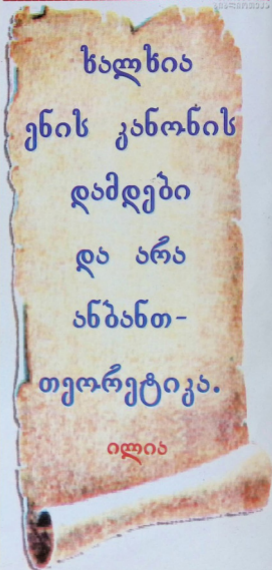 ხალხია
ენის კანონის
დამდები
და არა
ანბანთ-
თეორეტიკა.
ილია